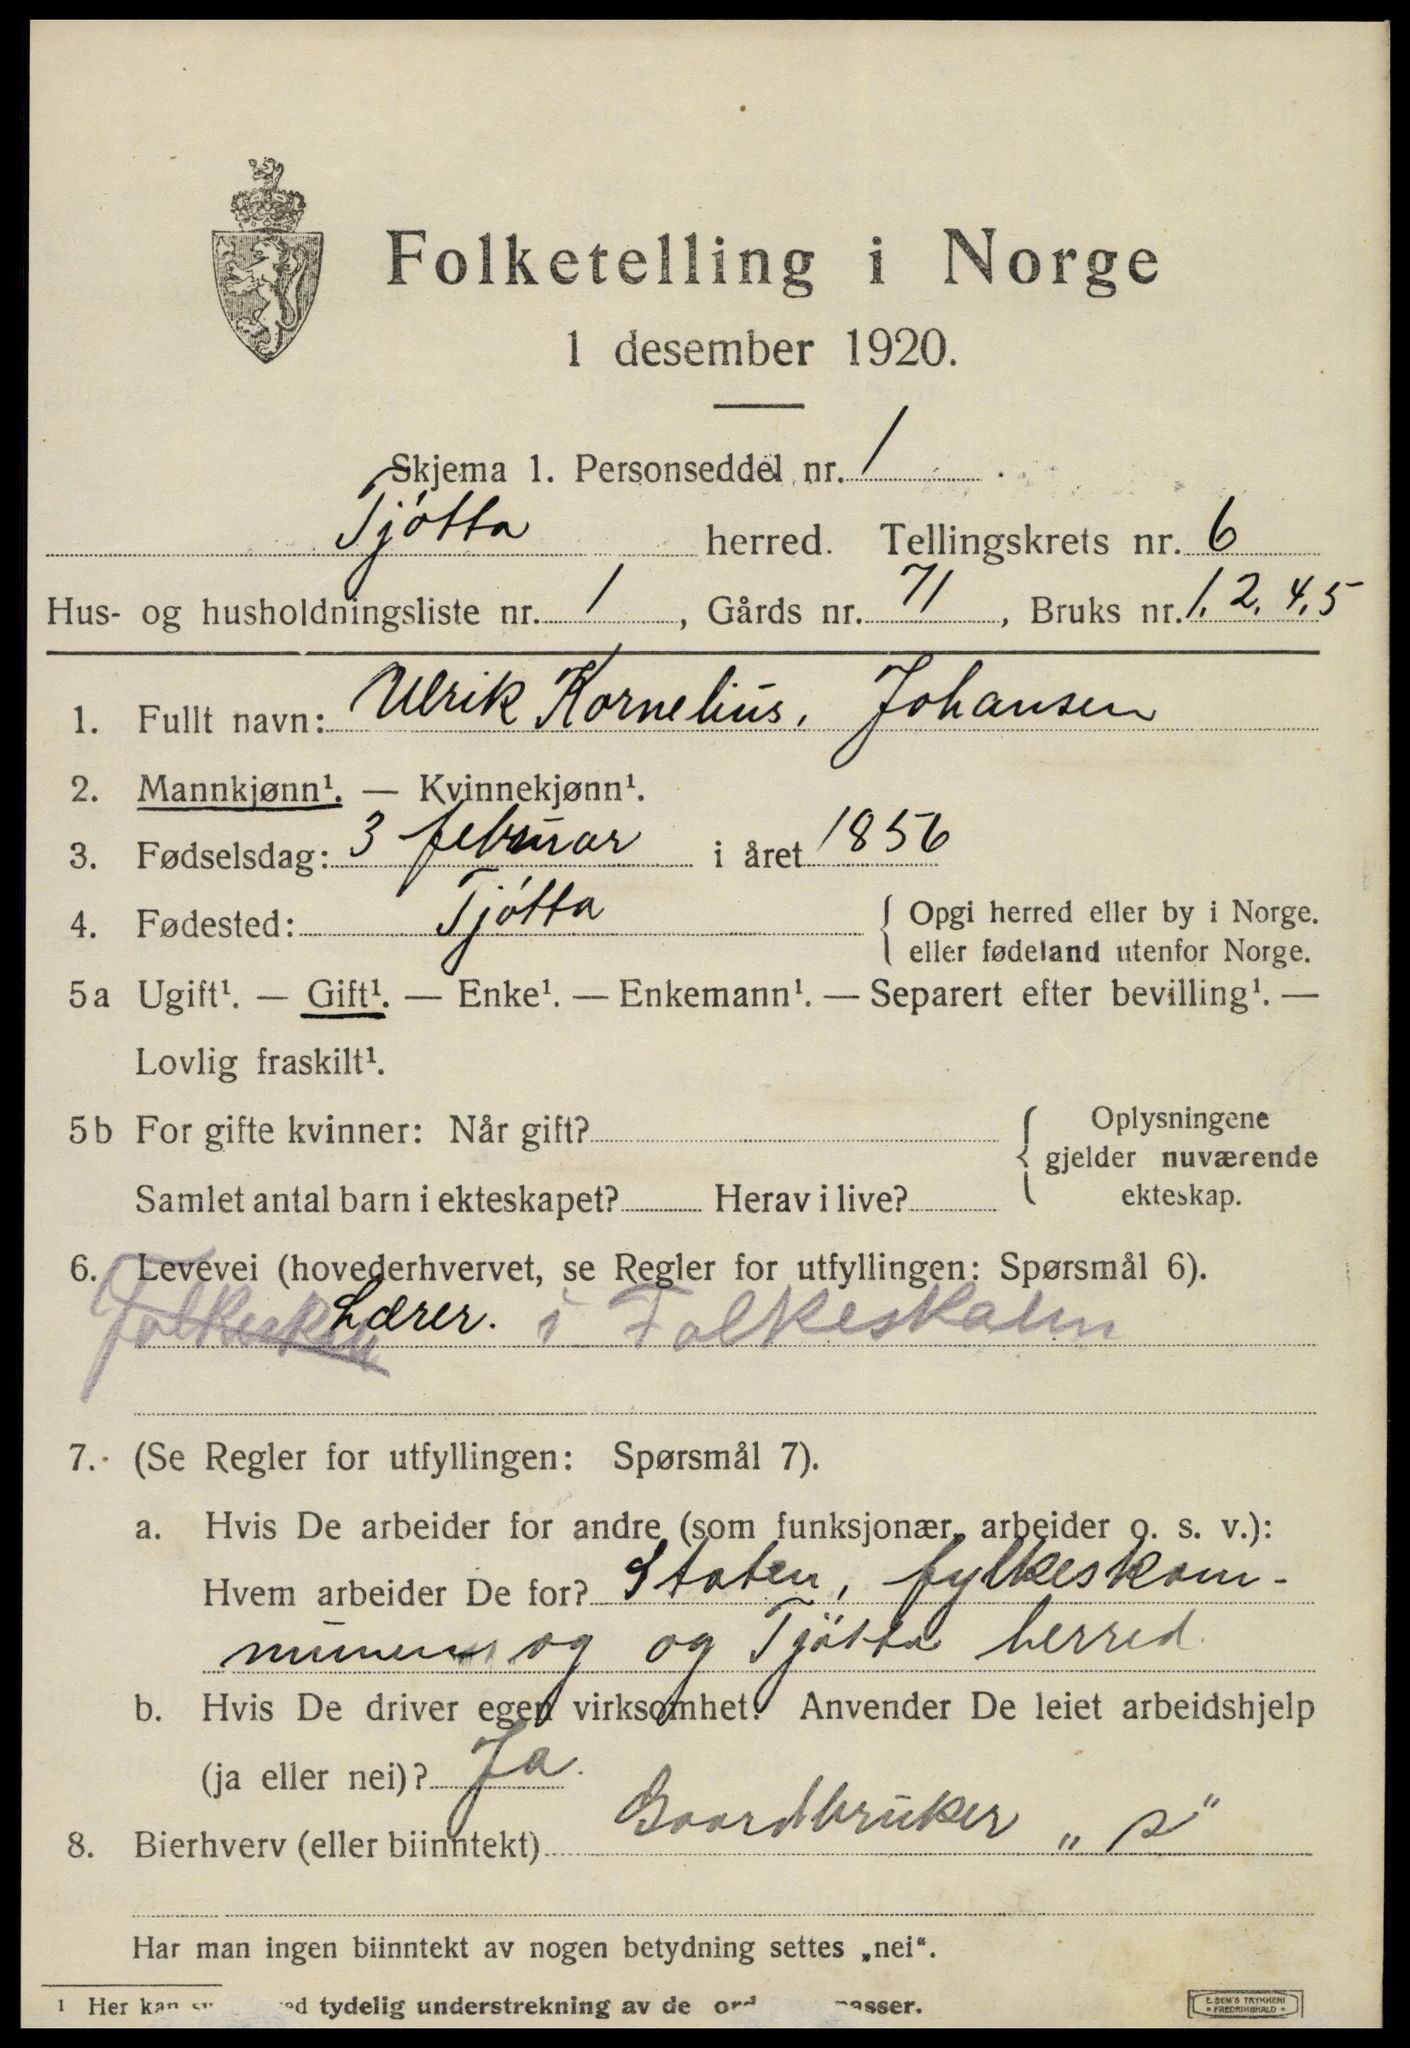 Folketelling i Norge
1 desember 1920.
Skjema 1. Personseddel nr. 1
Tjøtta herred. Tellingskrets nr. 6
Hus- og husholdningsliste nr. 1, Gårds nr. 71, Bruks nr. 1. 2. 4. 5
1. Fullt navn: Ulrik Kornelius. Johansen
2. Mannkjønn¹. — Kvinnekjønn¹.
3. Fødselsdag: 3 februar i året 1856
4. Fødested: Tjøtta { Opgi herred eller by i Norge.
eller fødeland utenfor Norge.
5a Ugift¹. — Gift¹. — Enke¹. — Enkemann¹. — Separert efter bevilling¹. —
Lovlig fraskilt¹.
5b For gifte kvinner: Når gift? { Oplysningene
gjelder nuværende
Samlet antal barn i ekteskapet? Herav i live? ekteskap.
6. Levevei (hovederhvervet, se Regler for utfyllingen: Spørsmål 6).
Lærer. i Folkeskolen
7. (Se Regler for utfyllingen: Spørsmål 7).
a. Hvis De arbeider for andre (som funksjonær, arbeider o. s. v.):
Hvem arbeider De for? Staten, fylkeskom-
munen og og Tjøtta herred
b. Hvis De driver egen virksomhet: Anvender De leiet arbeidshjelp
(ja eller nei)? Ja.
8. Bierhverv (eller biinntekt) Gaardbruker „ s"
Har man ingen biinntekt av nogen betydning settes „nei".
¹ Her kan tydelig understrekning av de passer.
E. SEM'S TRYKKERI
* FREDRIKSHALD *